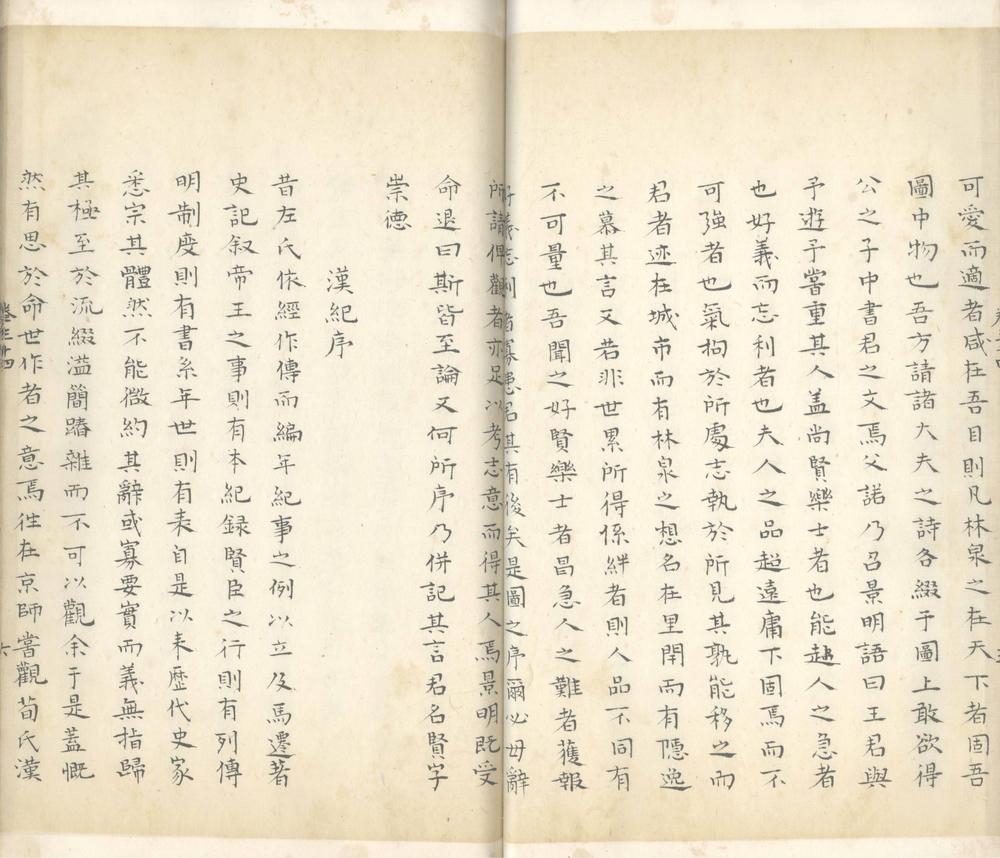 可愛而適者咸在吾目則凡林泉之在天下者固吾
圖中物也吾方請諸大夫之詩各綴于圖上敢欲得
公之子中書君之文焉父諾乃召景明語曰王君與
予遊予嘗重其人蓋尚賢樂士者也能趍人之急者
也好義而忘利者也夫人之品超遠庸下固焉而不
可強者也氣拘於所處志執於所見其孰能移之而
君者迹在城市而有林泉之想名在里閈而有隱逸
之慕其言又若非世累所得係絆者則人品不同有
不可量也吾聞之好賢樂士者昌急人之難者獲報
好義忘利者寡患君其有後矣是圖之序爾必毋辭
所議俾觀者亦足以考志意而得其人焉景明既受
命退曰斯皆至論又何所序乃併記其言君名賢字
崇德
漢紀序
昔左氏依經作傳而編年紀事之例以立及馬遷著
史記叙帝王之事則有本紀録賢臣之行則有列傳
明制度則有書系年世則有表自是以来歷代史家
悉宗其體然不能微約其辭或寡要實而義無指歸
其極至於流綴滥簡踳雜而不可以觀余于是蓋慨
然有思於命世作者之意焉徃在京師嘗觀荀氏漢
卷三十四
六